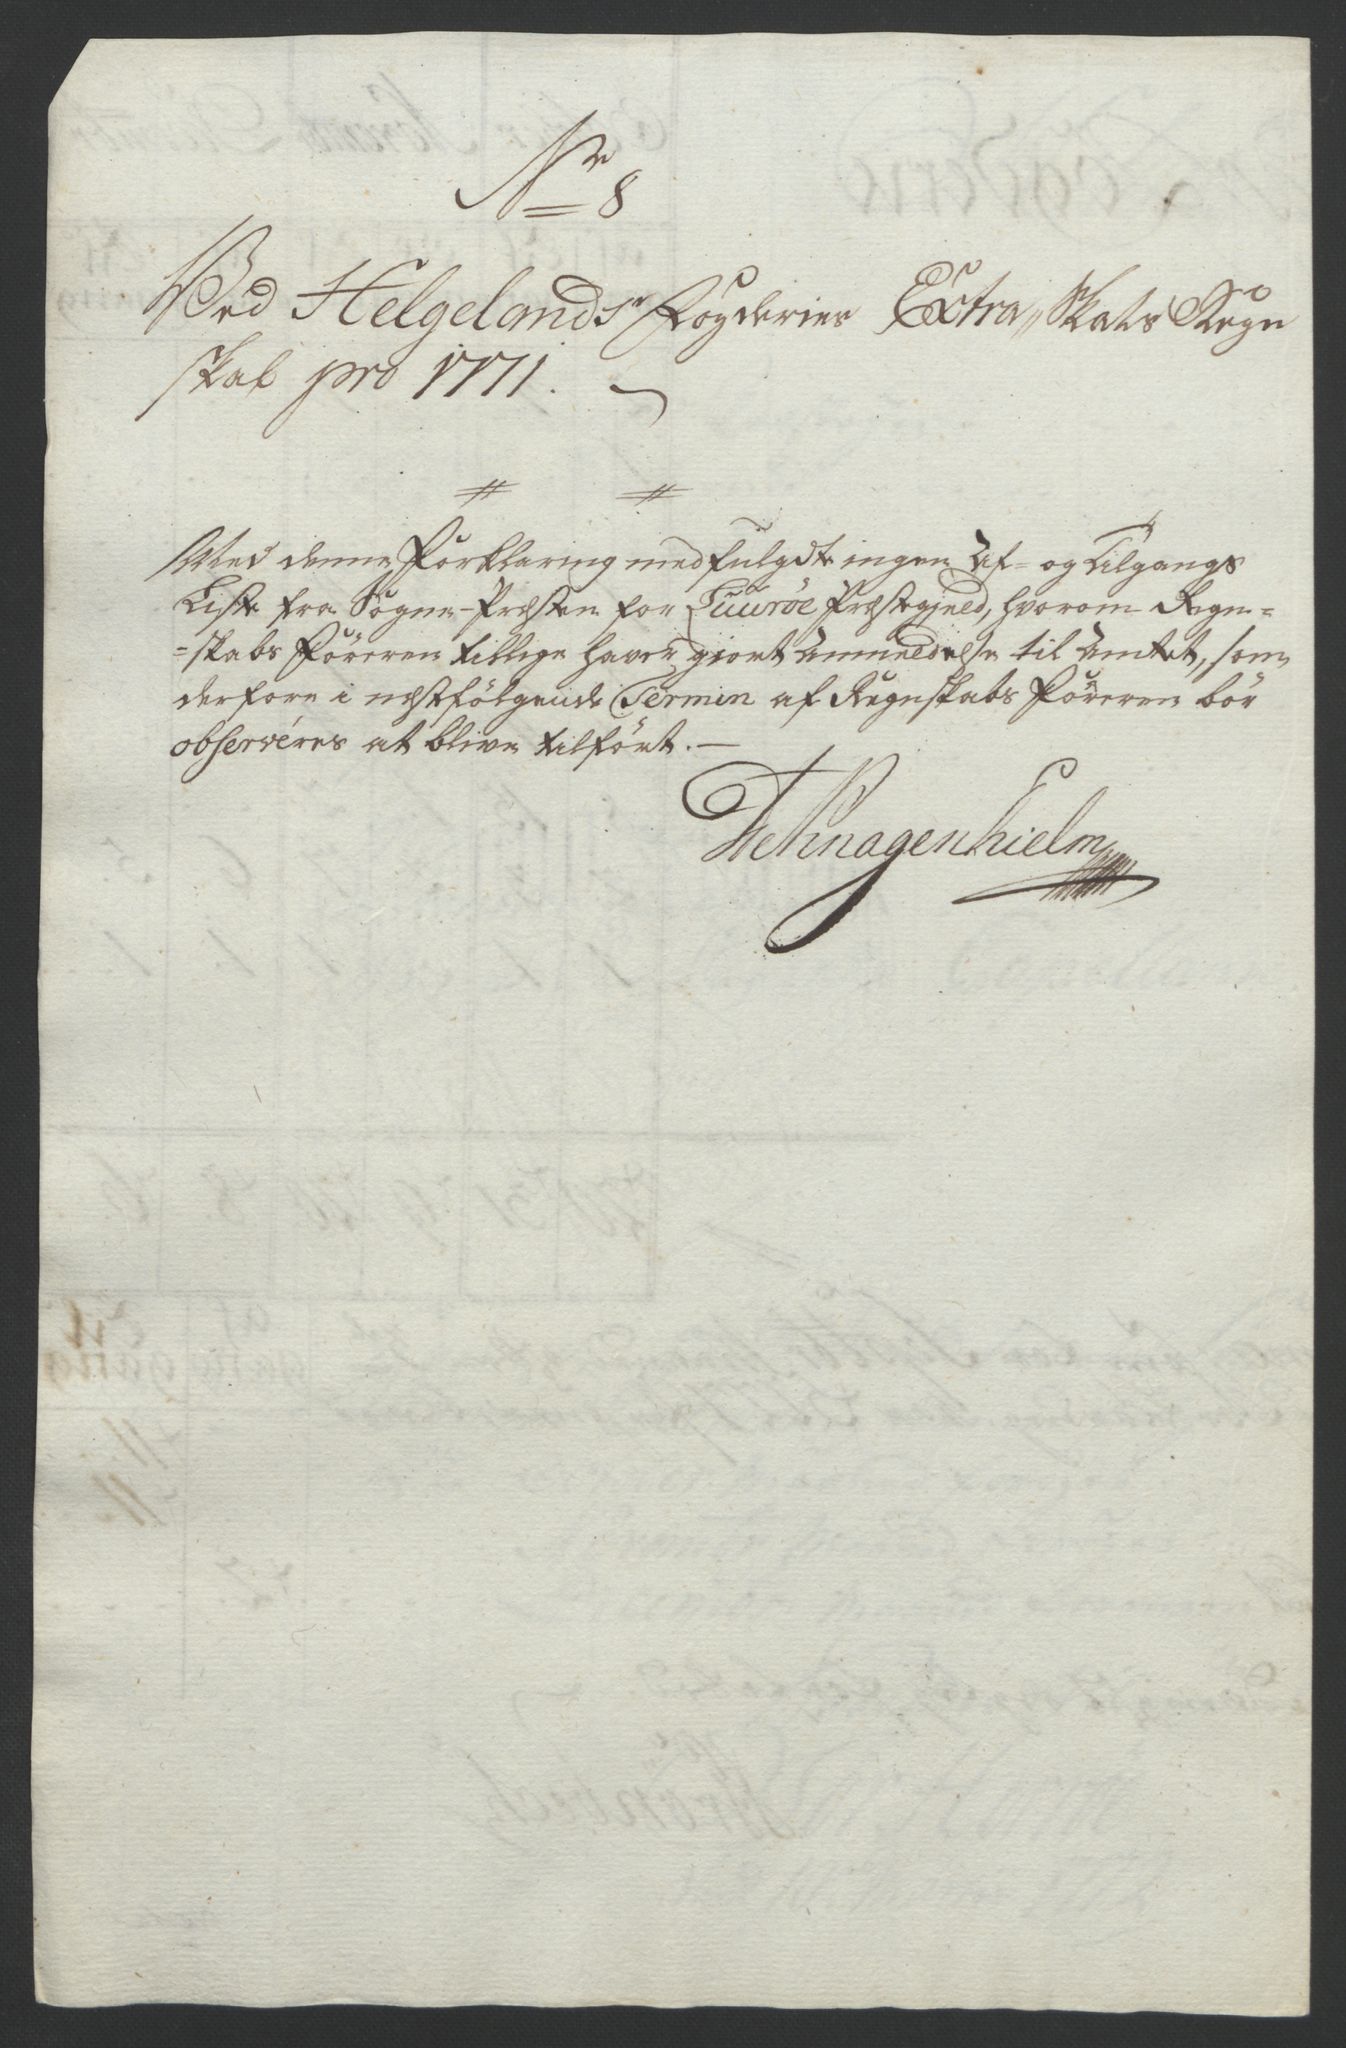 Nr 8
Ved Helgelands Fogderies Extra Skats Regn
skab pro 1771.
Med denne Forklaring medfulgdte ingen Af- og Tilgangs
Liste fra Sogne-Præsten for Luurøe Præstegield, hvorom Regn=
=skabs Föreren tillige haver giort Anmeldelse til Amtet, som
derfore i næstfölgende Termin af Regnskabs Föreren bör
observéres at blive tilfört.
Knagenhielm